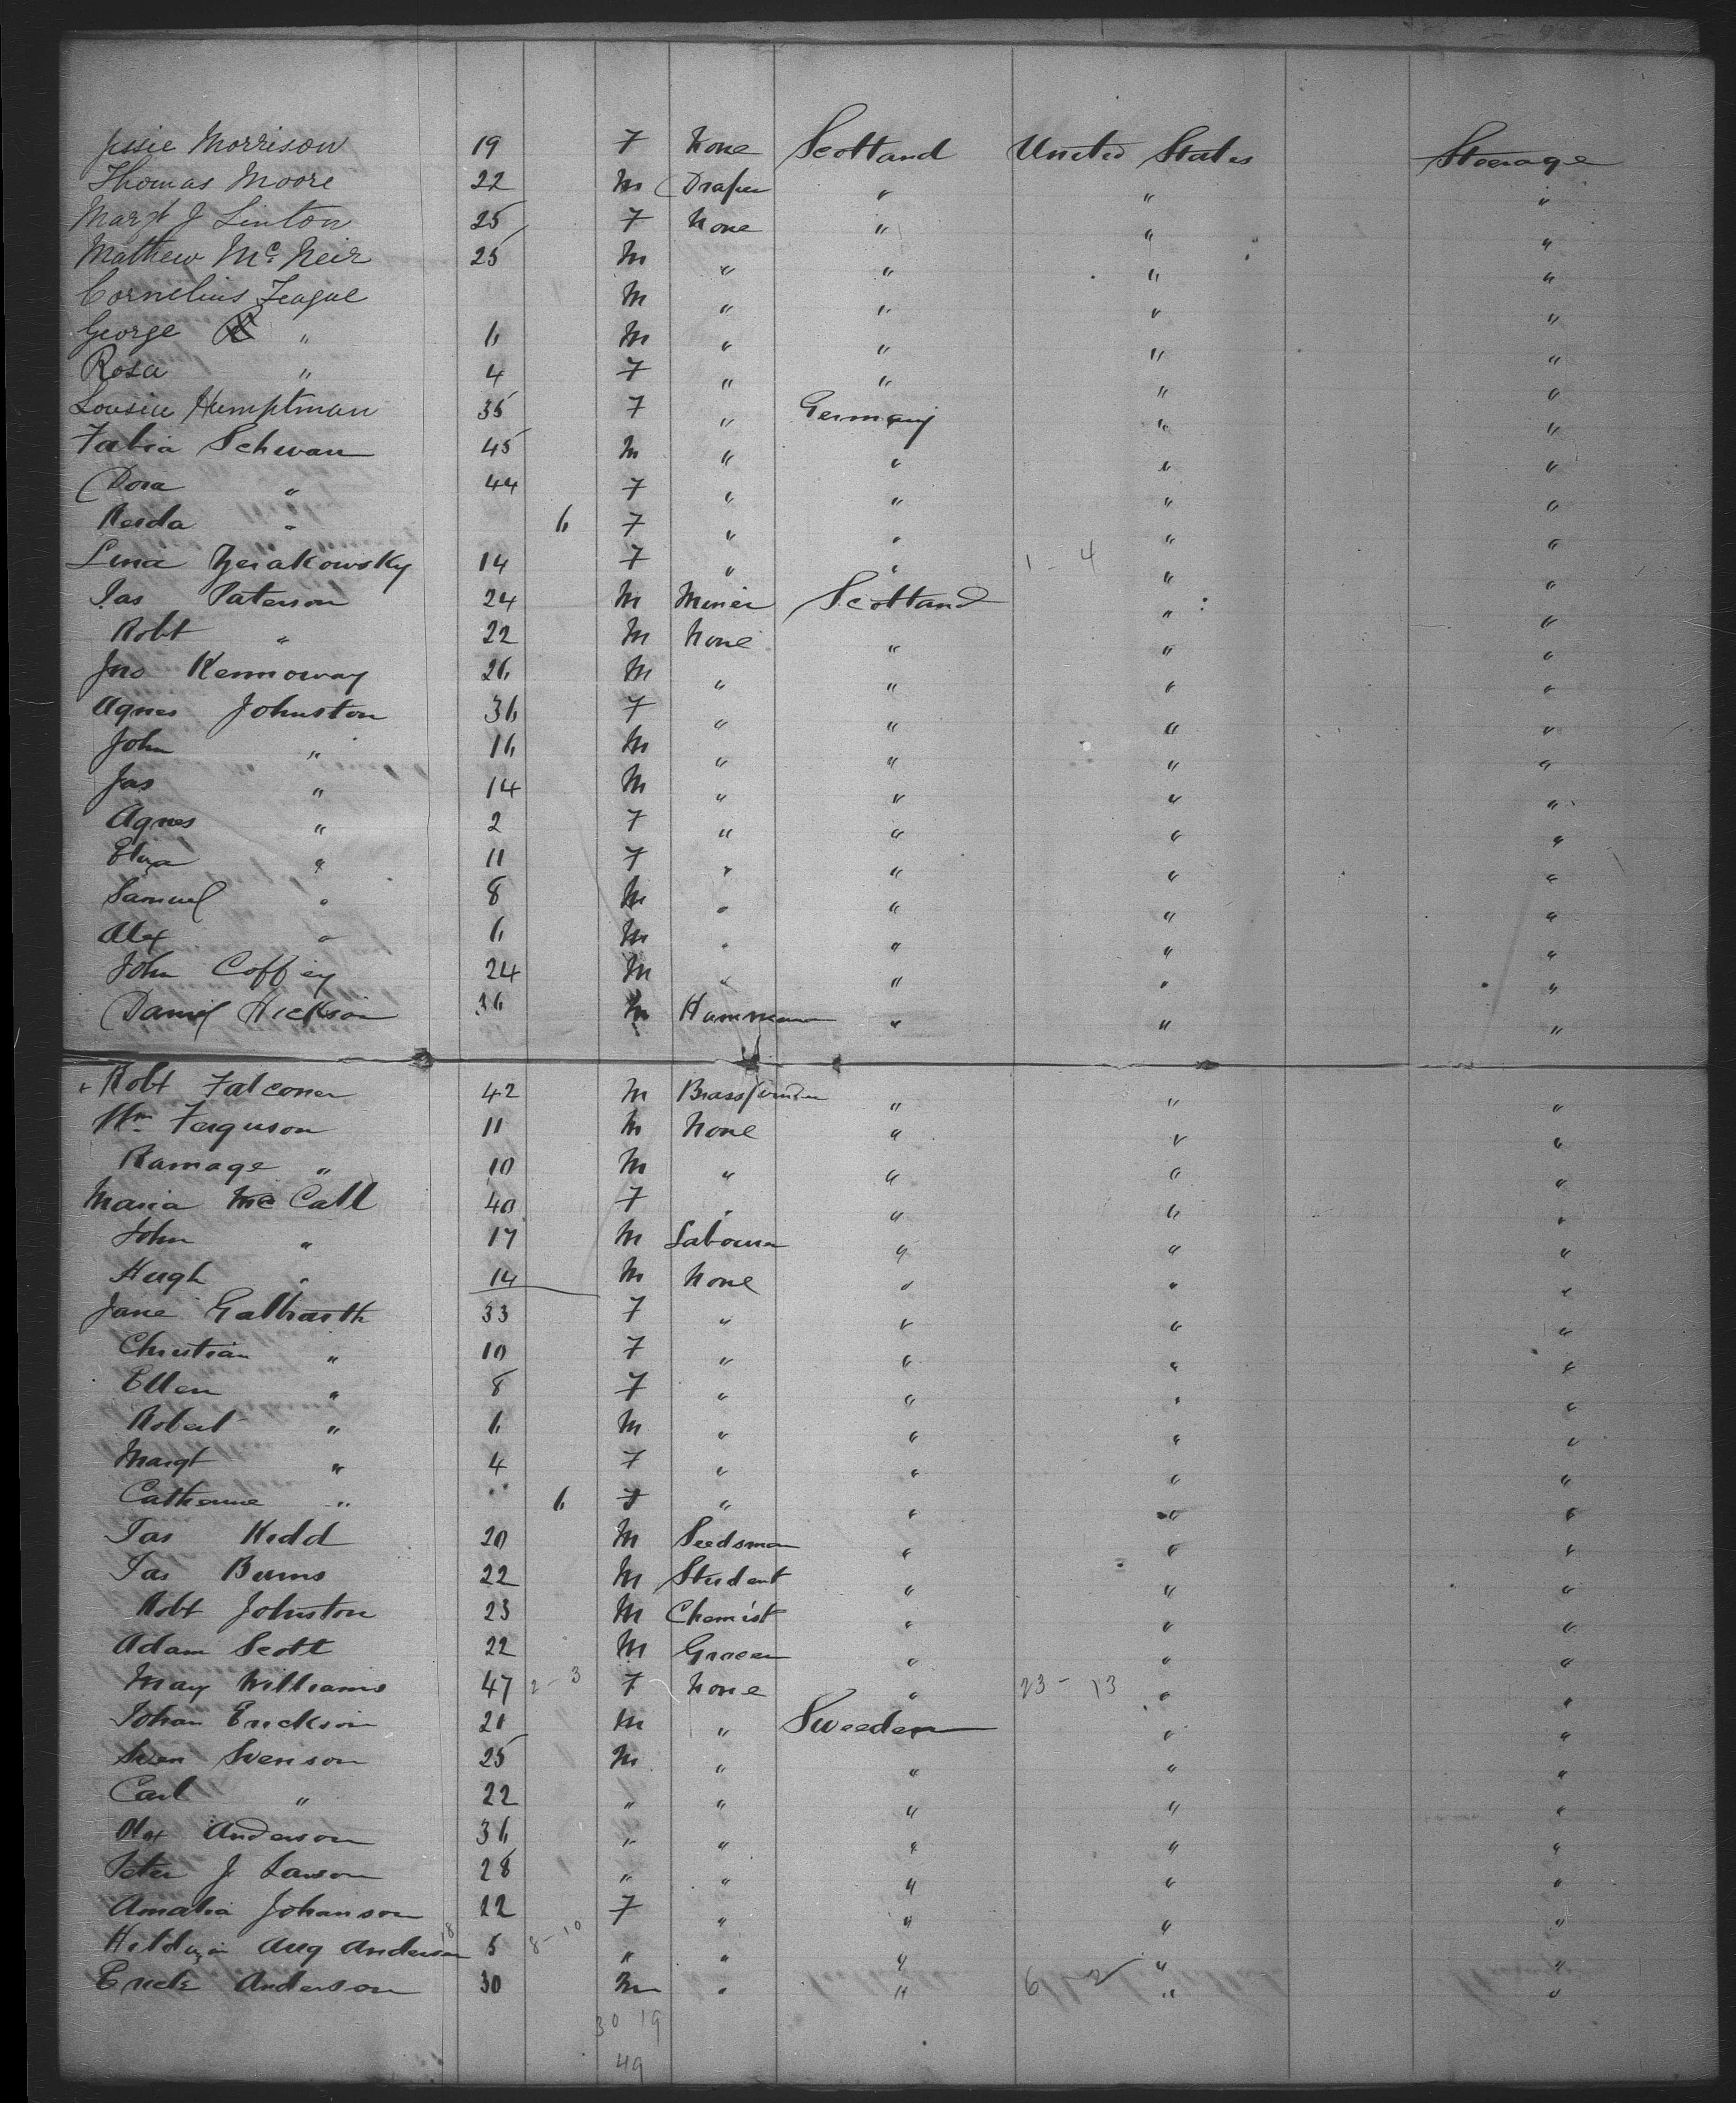 Jessie Morrison 19 F None Scotland United States Steerage
Thomas Moore 22 M Draper " " "
Margt J Linton 25 F None " " "
Mathew Mc Neir 25 M " " " "
Cornelius Teague M " " " "
George " 6 M " " " "
Rosa " 4 F " " " "
Lousia Humptman 35 F " Germany " "
Fabia Schwan 45 M " " " "
Dora " 44 F " " " "
" 6 F " " " "
Lina 14 F " " 1 - 4 " "
Jas Paterson 24 M Miner Scotland " "
Robt " 22 M None " " "
Jno Kennoway 26 M " " " "
Agnes Johnston 36 F " " " "
John " 16 M " " " "
Jas " 14 M " " " "
Agnes " 2 F " " " "
Eliza " 11 F " " " "
Samuel " 8 M " " " "
Alex " 6 M " " " "
John Coffey 24 M " " " "
Daniel Hickson 36 M " " "
Robt Falconer 42 M Brassfounder " " "
Wm Ferguson 11 M None " " "
Ramage " 10 M " " " "
Maria Mc Call 40 F " " " "
John " 17 M Labourer " " "
Hugh " 14 M None " " "
Jane Galbraith 33 F " " " "
Christian " 10 F " " " "
Ellen " 8 F " " " "
Robert " 6 M " " " "
Margt " 4 F " " " "
Catherine " 6 F " " " "
Jas Kidd 20 M Seedsman " " "
Jas Burns 22 M Student " " "
Robt Johnston 23 M Chemist " " "
Adam Scott 22 M Grocer " " "
May Williams 47 2 - 3 F None " 23 - 13 " "
Johan Erickson 21 M " Sweeden " "
Sven Svenson 25 M " " " "
Carl " 22 " " " " "
Alex Anderson 36 " " " " "
Peter J Lawson 28 " " " " "
Amalia Johanson 22 F " " " "
Aug Anderson 18 5 8 - 10 " " " " "
Erick Anderson 30 M " " 6 2 " "
30 19
49